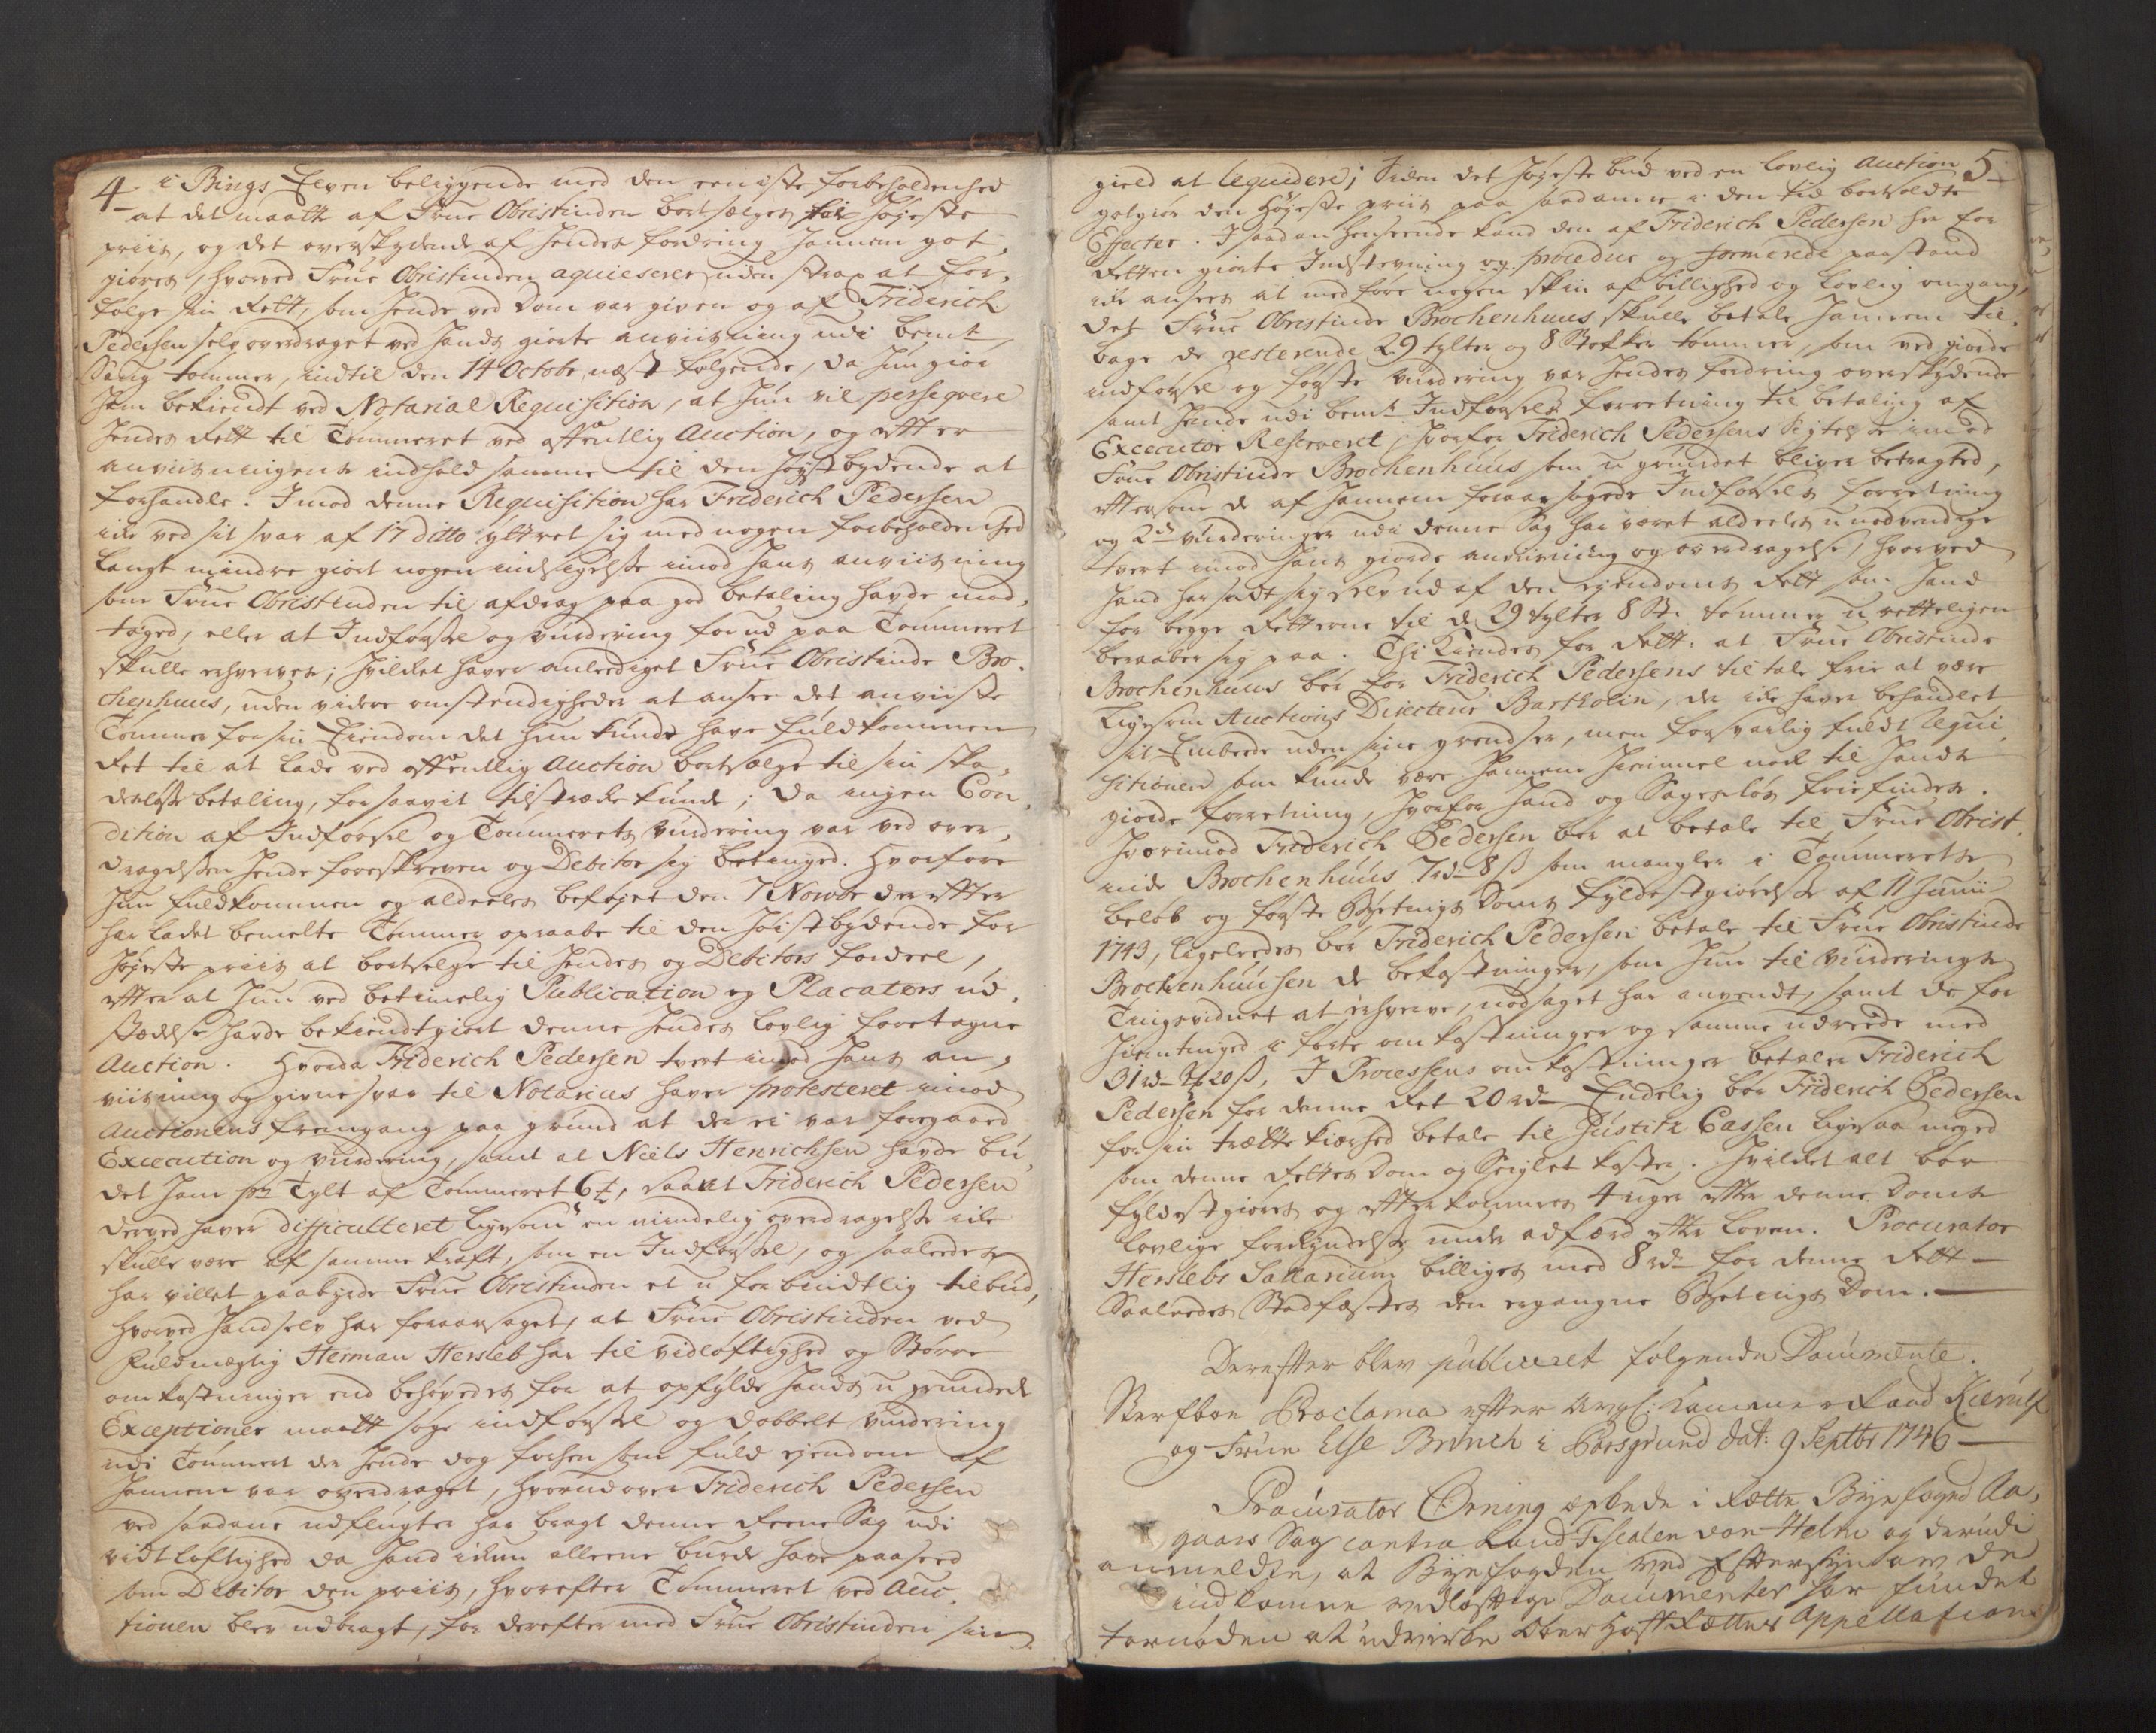 4
i Bings Elven beliggende med den eeniste forbeholdenhed
at det maatte af Frue Obristinden bortsælges for høyeste
priis, og det overskydende af hendes fordring hannem got,
giøres, hvorved Frue Obristinden aquiescerer uden strax at for,
følge sin Rett, som hende ved Dom var given og af Friderich
Pedersen selv overdraget ved hands giorte anviisning udi bemte
Saug tømmer, indtil den 14 Octobr næst følgende, da hun giør
ham bekiendt ved Notarial Requisition, at hun vil perseqvere
hendes Rett til Tømmeret ved offentlig Auction, og effter
anviisningens indhold samme til den høystbydende at
forhandle. Imod denne Requisition har Friderich Pedersen
icke ved sit svar af 17 ditto yttret sig med nogen forbeholdenhed
langt mindre giort nogen indsigelse imod hans anviisning
som Frue Obristinden til afdrag paa god betaling havde mod,
taged, eller at Indførsel og vurdering forud paa Tømmeret
skulle erhverves; hvilket haver anlediget Frue Obristinde Bro,
chenhuus, uden videre omstændigheder at ansee det anviiste
Tømmer for sin Eiendom det hun kunde have fuldkommen
Ret til at lade ved offentlig Auction bortsælge til sin ska,
desløse betaling, forsaavit tilstrække kunde; da ingen Con,
dition af Indførsel og Tømmerets vurdering var ved over,
dragelsen hende foreskreven og Debitor sig betinged. Hvorfore
hun fuldkommen og aldeeles beføyet den 7 Novbr der effter
har ladet bemelte Tømmer opraabe til den høistbydende for
høyeste priis at bortselge til hendes og Debitors fordeel,
effter at hun ved betimelig Publication og Placaters ud,
stædelse havde bekiendtgiort denne hendes lovlig foretagne
Auction. Hvorda Friderich Pedersen tvert imod hans an,
viisning og givne svar til Notarius haver protesteret imod
Auctionens fremgang paa grund at der ei var foregaaed
Execution og vurdering, samt at Niels Henrichsen havde bu,
det ham pr Tylt af Tømmeret 6, saa at Friderich Pedersen
derved haver difficulteret ligesom en mindelig overdragelse icke
skulle være af samme kraft, som en Indførsel, og saaledes
har villet paabyrde Frue Obristinden et uforbindtlig tilbud,
hvorved hand selv har foraarsaget, at Frue Obristinden ved
Fuldmægtig Herman Hersleb har til vidløftighed og Større
omkostninger end behøvedes for at opfylde hands ugrundede
Exceptioner maatt søge indførsel og dobbelt vurdering
udi Tømmeret der hende dog forhen som fuld ejendom af
hannem var overdraget, hvorudover Friderich Pedersen
ved saadane udflugter har bragt denne Reene Sag udi
vidtløftighed da hand icken alleene burde have paaseed
som Debitor den priis, hvorefter Tømmeret ved Auc,
tionen blev udbragt, for derefter med Frue Obristinden sin
5
gield at liquidere; siden det høyeste bud ved en lovlig Auction
gotgiør den Høyeste priis paa saadanne i den tid bortsoldte
Effecter. I saadan henseende kand den af Friderich Pedersen her for
Retten giorte Indstevning og procedur og formerede paastand
icke ansees at medføre nogen skin af billighed og lovlig omgang,
det Frue Obristinde Brochenhuus skulle betale hannem til,
bage de resterende 29 tylter og 8 Stokker tømmer, som ved giorde
indførsel og første vurdering var hendes fordring overskydende
samt hende udi bemte Indførsels forretning til betaling af
Executor Reserveret, hvorfor Friderich Pedersens Sigtelse imod
Frue Obristinde Brochenhuus som ugrundet bliver betragted,
effter som de af hannem foraarsagede Indførsels forretning
og 2de vurderinger udi denne Sag har været aldeeles unødvendige
tvert imod hans giorde anviisning og overdragelse, hvorved
hand har sadt sig selv ud af den ejendoms Rett som hand
for begge Retterne til de 29 tylter 8 St. tømmer uretteligen
beraaber sig paa. Thi Kiendes for Rett: at Frue Obristinde
Brochenhuus bør for Friderich Pedersens tiltale frie at være
Ligesom Auctions Directeur Bartholin, der icke haver behandlet
sit Embede uden sine grendser, men forsvarlig fuldt Requi,
sitionen som kunde være hannem hiemmel nok til hands
giorde forretning, hvorfor hand og Sagesløs friefindes.
Hvorimod Friderich Pedersen bør at betale til Frue Obrist,
inde Brochenhuus 7 rd 8 ß som mangler i Tømmerets
beløb og første Byetings Doms Fyldestgiørelse af 11 Junii
1743, ligeleedes bør Friderich Pedersen betale til Frue Obristinde
Brochenhuusen de bekostninger, som hun til vurderings
Tingsvidnet at erhverve, nødsaget har anvendt, samt de for
hiemtinged i førte omkostninger og samme udreede med
31 rd 20 ß, I Processens omkostninger betaler Friderich
Pedersen for denne Ret 20 rd Endelig bør Friderich Pedersen
for sin trættekiærhed betale til Justits Cassen ligesaa meged
som denne Rettes Dom og Seiglet koster. Hvilket alt bør
fyldestgiøres og effterkommes 4 uger effter denne Doms
lovlige forkyndelse under adfærd effter loven. Procurator
Herslebs Sallarium billiges med 8 rd for denne Rett
Saaleedes Stadfæstes den ergangne Byetings Dom.
Dereffter blev publiceret følgende Documente.
Sterfboe Proclama effter Cammer Raad Kierulf
og Frue Else Brunch i Porsgrund dat: 9 Septbr 1746
Procurator Örning æskede i Rætte Byefoged Aa,
gaars Sag contra Land Fiscalen von Helm og derudi
anmeldte, at Byefogden ved Effterseyn av de
indkomne vedløftige Documenter har fundet
fornøden at udvirke Ober Hoff Rættes Appellation